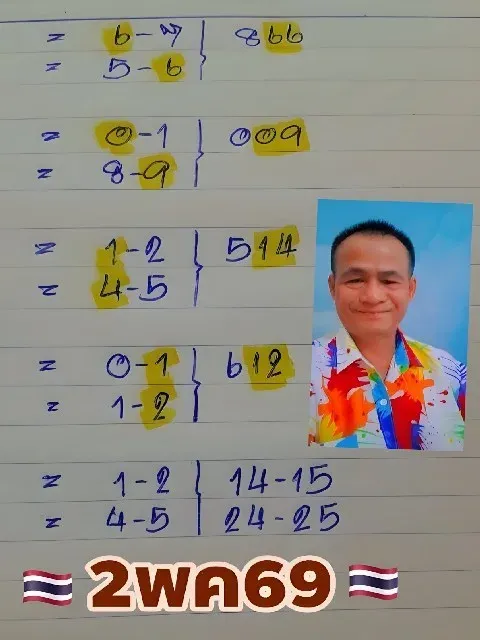 = 6-7 } 866
= 5-6
= 0-1 } 009
= 8-9
= 1-2 } 514
= 4-5
= 0-1 } 612
= 1-2
= 1-2 } 14-15
= 4-5 24-25
2พค69